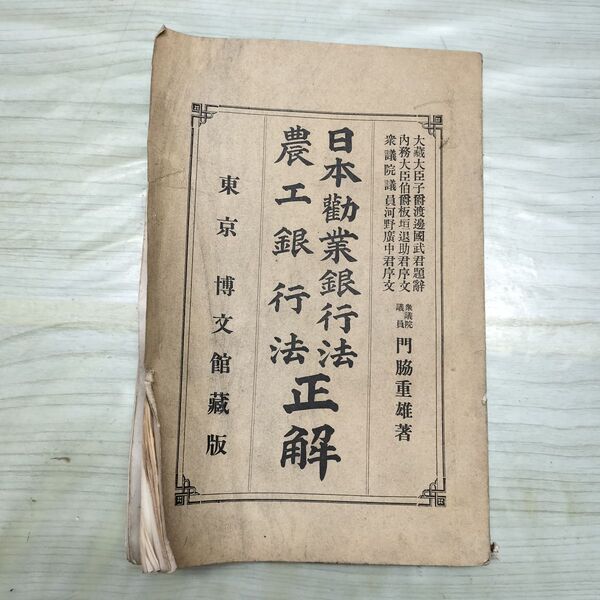 大藏大臣子爵渡邊國武君題辭
內務大臣伯爵板垣退助君序文
衆議院議員河野廣中君序文
衆議院議員 門脇重雄著
日本勸業銀行法
農工銀行法
正解
東京 博文館藏版